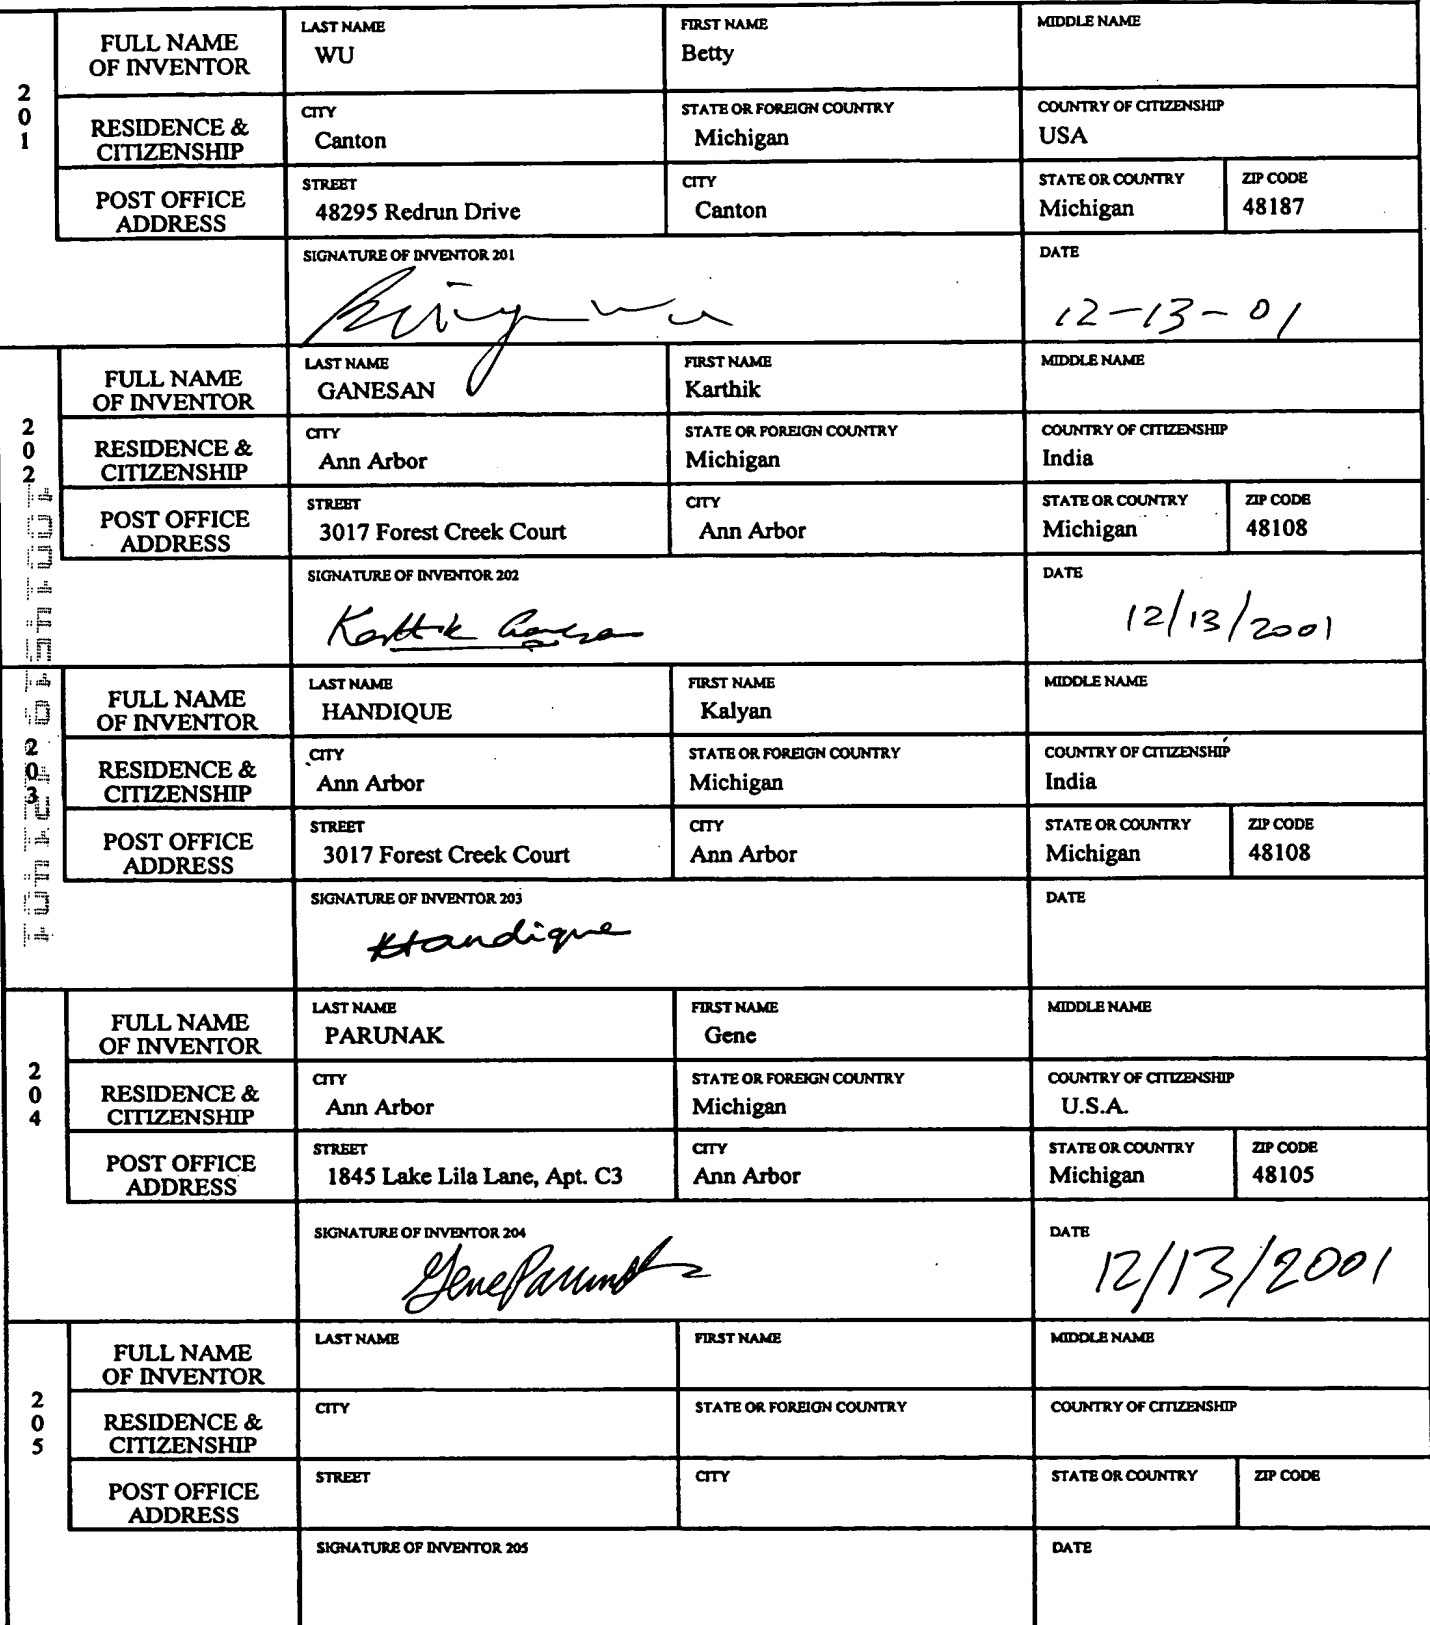 201
FULL NAME OF INVENTOR
LAST NAME
WU
FIRST NAME
Betty
MIDDLE NAME
RESIDENCE & CITIZENSHIP
CITY
Canton
STATE OR FOREIGN COUNTRY
Michigan
COUNTRY OF CITIZENSHIP
USA
POST OFFICE ADDRESS
STREET
48295 Redrun Drive
CITY
Canton
STATE OR COUNTRY
Michigan
ZIP CODE
48187
SIGNATURE OF INVENTOR 201
Betty Wu
DATE
12-13-01
202
FULL NAME OF INVENTOR
LAST NAME
GANESAN
FIRST NAME
Karthik
MIDDLE NAME
RESIDENCE & CITIZENSHIP
CITY
Ann Arbor
STATE OR FOREIGN COUNTRY
Michigan
COUNTRY OF CITIZENSHIP
India
POST OFFICE ADDRESS
STREET
3017 Forest Creek Court
CITY
Ann Arbor
STATE OR COUNTRY
Michigan
ZIP CODE
48108
SIGNATURE OF INVENTOR 202
Karthik Ganesan
DATE
12/13/2001
203
FULL NAME OF INVENTOR
LAST NAME
HANDIQUE
FIRST NAME
Kalyan
MIDDLE NAME
RESIDENCE & CITIZENSHIP
CITY
Ann Arbor
STATE OR FOREIGN COUNTRY
Michigan
COUNTRY OF CITIZENSHIP
India
POST OFFICE ADDRESS
STREET
3017 Forest Creek Court
CITY
Ann Arbor
STATE OR COUNTRY
Michigan
ZIP CODE
48108
SIGNATURE OF INVENTOR 203
Handique
DATE
204
FULL NAME OF INVENTOR
LAST NAME
PARUNAK
FIRST NAME
Gene
MIDDLE NAME
RESIDENCE & CITIZENSHIP
CITY
Ann Arbor
STATE OR FOREIGN COUNTRY
Michigan
COUNTRY OF CITIZENSHIP
U.S.A.
POST OFFICE ADDRESS
STREET
1845 Lake Lila Lane, Apt. C3
CITY
Ann Arbor
STATE OR COUNTRY
Michigan
ZIP CODE
48105
SIGNATURE OF INVENTOR 204
Gene Parunak
DATE
12/13/2001
205
FULL NAME OF INVENTOR
LAST NAME
FIRST NAME
MIDDLE NAME
RESIDENCE & CITIZENSHIP
CITY
STATE OR FOREIGN COUNTRY
COUNTRY OF CITIZENSHIP
POST OFFICE ADDRESS
STREET
CITY
STATE OR COUNTRY
ZIP CODE
SIGNATURE OF INVENTOR 205
DATE